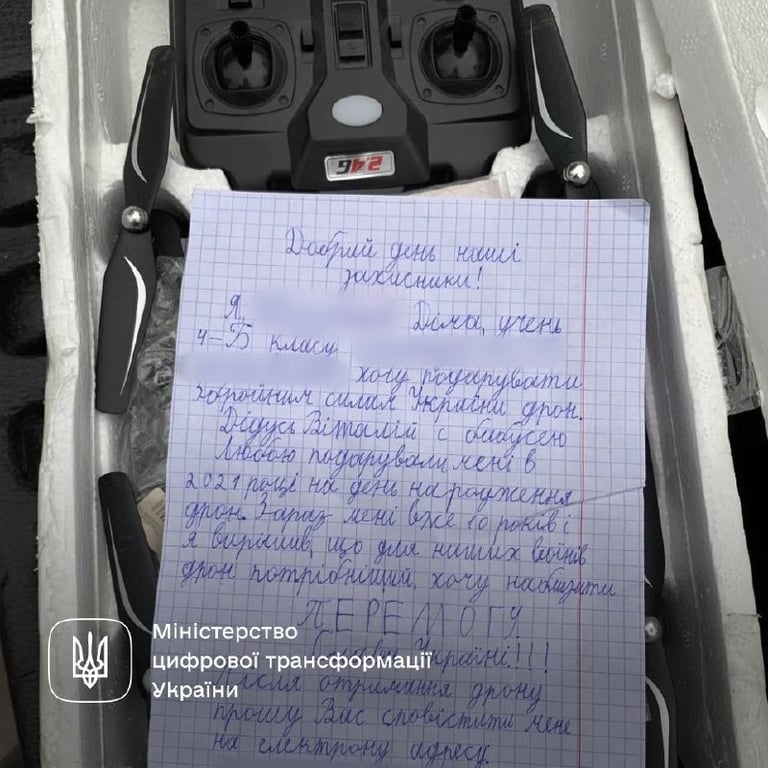 2.4G
Добрий день наші
захисники!
Я, Діма, учень
4-Б класу
хочу подарувати
Збройним силам України дрон.
Дідусь Віталій с бабусею
Любою подарували мені в
2021 році на день народження
дрон. Зараз мені вже 10 років і
я вирішив, що для наших воїнів
дрон потрібніший, хочу наблизити
ПЕРЕМОГУ
Слава Україні!!!
Після отримання дрону
прошу Вас сповістити мене
на електрону адресу.
Міністерство
цифрової трансформації
України